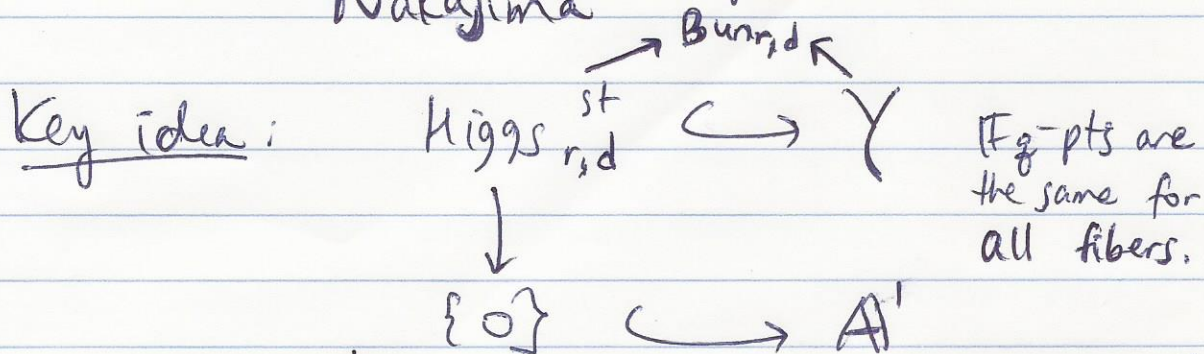 Nakajima
Bun r,d
Key idea: Higgs st r,d ↪ Y
𝔽q-pts are
the same for
all fibers.
{0} ↪ 𝔸¹